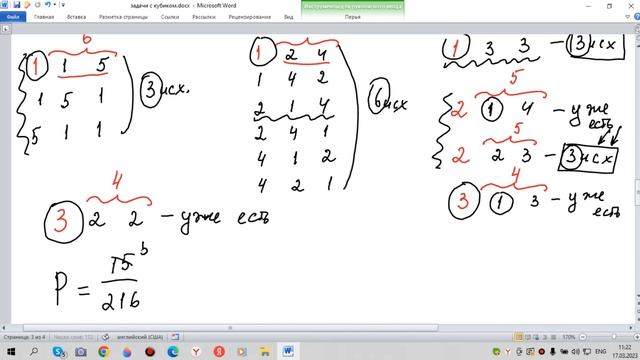 задачи с кубиком.docx - Microsoft Word
Инструменты для рукописного ввода
Файл Главная Вставка Разметка страницы Ссылки Рассылки Рецензирование Вид Надстройки Перья
6
1 1 5
1 5 1
5 1 1
3 исх.
1 2 4
1 4 2
2 1 4
2 4 1
4 1 2
4 2 1
6 исх
1 3 3 — 3 исх
5
2 1 4 — уже есть
5
2 2 3 — 3 исх
4
3 1 3 — уже есть
4
3 2 2 — уже есть
P = 15 / 216
Страница: 3 из 4 Число слов: 112 английский (США) 170%
ENG
11:22
17.03.2023